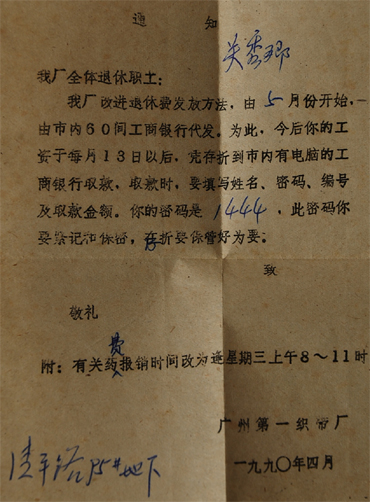 通 知
关秀卿
我厂全体退休职工:
我厂改进退休费发放方法,由5月份开始,一
由市内60间工商银行代发。为此,今后你的工
资于每月13日以后,凭存折到市内有电脑的工
商银行取款,取款时,要填写姓名、密码、编号
及取款金额。你的密码是1444,此密码你
要紧记和保密,存折妥保管好为要。
致
敬礼
费
附:有关药报销时间改为逢星期三上午8~11时
广州第一织带厂
一九九〇年四月
地下